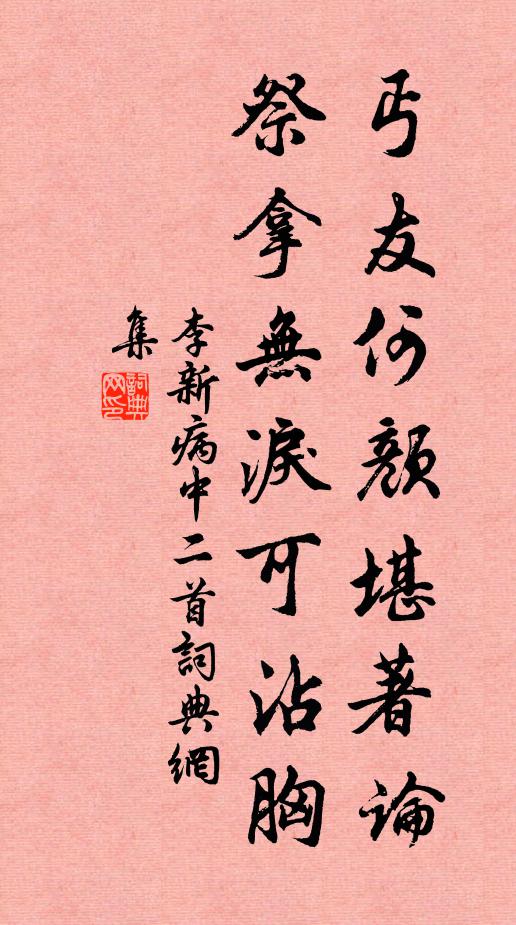 丐友何顏堪著論
祭拿無淚可沾胸
李新病中二首詞典網
集
詞典網印